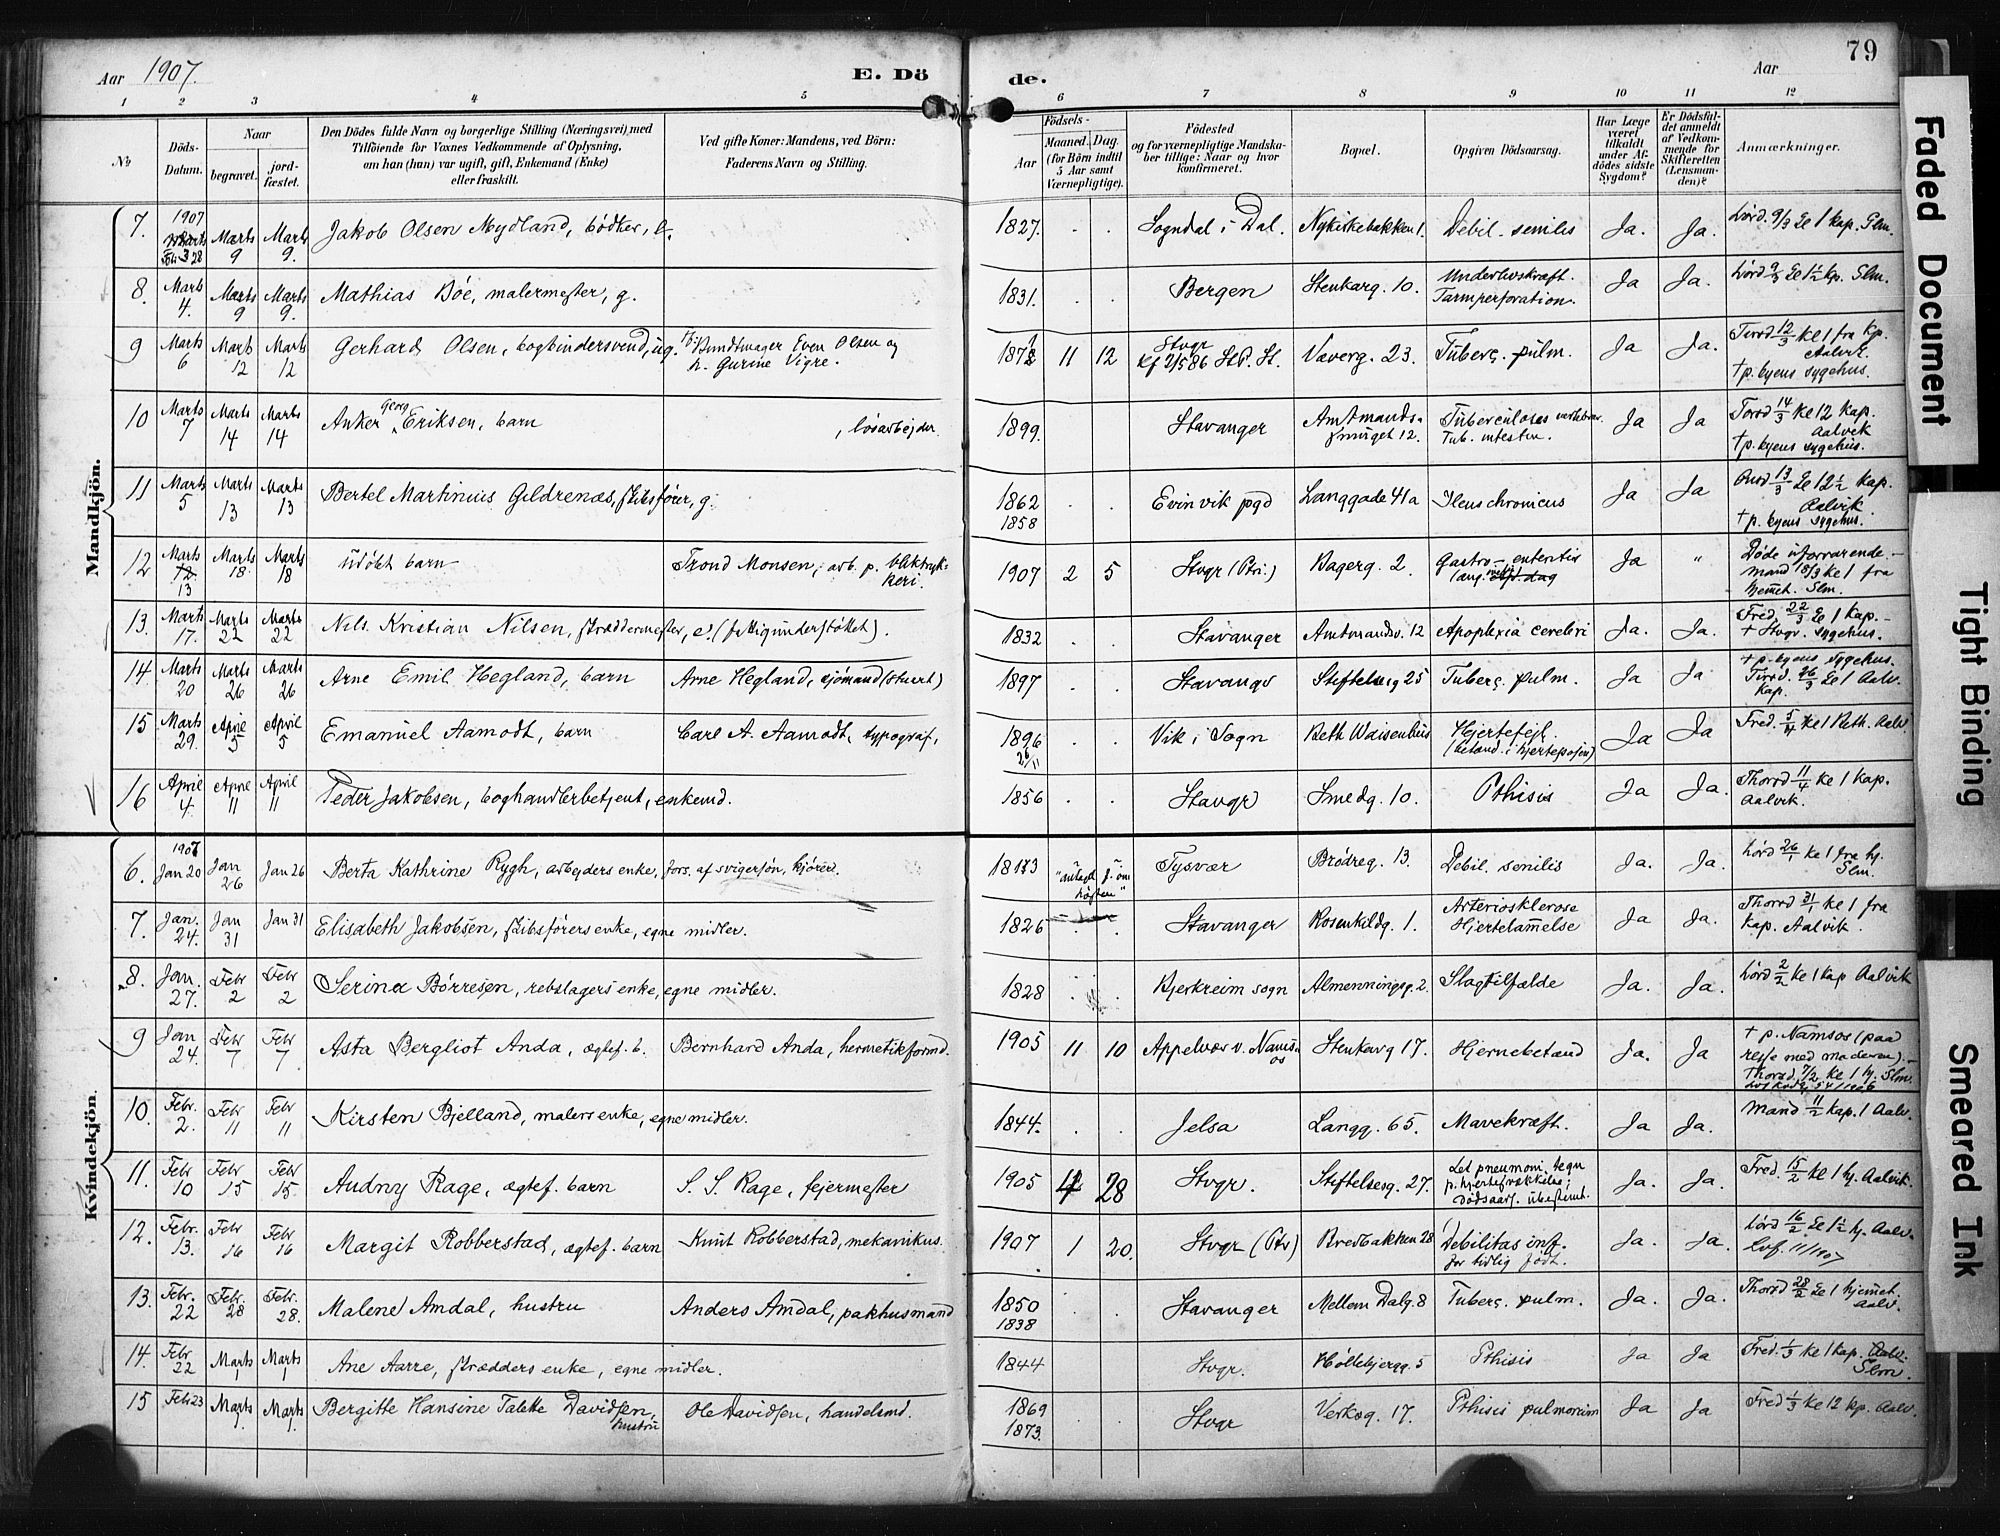 Aar 1907.
E. Dö
de.
Aar
79
1 2 3 4 5 6 7 8 9 10 11 12
№
Döds-Datum.
Naar
begravet.
jord-fæstet.
Den Dödes fulde Navn og borgerlige Stilling (Næringsvei), med
Tilföiende for Voxnes Vedkommende af Oplysning,
om han (hun) var ugift, gift, Enkemand (Enke)
eller fraskilt.
Ved gifte Koner: Mandens, ved Börn:
Faderens Navn og Stilling.
Födsels-
Aar
Maaned. Dag.
(for Börn indtil
5 Aar samt
Værnepligtige).
Födested
og for værnepligtige Mandska-
ber tillige: Naar og hvor
konfirmeret.
Bopæl.
Opgiven Dödsaarsag.
Har Læge
været
tilkaldt
under Af-
dödes sidste
Sygdom?
Er Dödsfal-
det anmeldt
af Vedkom-
mende for
Skifteretten
(Lensman-
den)?
Anmærkninger.
Mandkjön.
7. 1907 Marts 3 Marts 9 Marts 9. Jakob Olsen Mydland, bødker, e. 1827. . . Sogndal i Dal. Nykirkebakken 1. Debil. senilis Ja. Ja. Lørd. 9/3 Ee 1 kap. Slm.
8. Marts 4. Marts 9 Marts 9. Mathias Bøe, malermester, g. 1831. . . Bergen Stenkarg. 10. Underlivskræft. Tarmperforation. Ja Ja. Lørd 9/3 Ee 1½ kp. Slm.
9 Marts 6 Marts 12 Marts 12 Gerhard Olsen, bogbindersvend, ug. Bundtmager Even Olsen og h. Gurine Vigre. 11 12 Stvgr Kf 2/5 86 St. P. St. Væverg. 23. Tuberc. pulm. Ja Ja. Tirsd 12/3 ke 1 fra Kp. Aalvik. † p. byens sygehus.
10 Marts 7 Marts 14 Marts 14 Anker Georg Eriksen, barn , løsarbejder. 1899. . . Stavanger Amtmands-smuget 12. Tuberculoses vertebrar. Tub. intestin. Ja Ja Torsd 14/3 ke 12 Kap. Aalvik † p. byens sygehus.
11 Marts 5 Marts 13 Marts 13 Bertel Martinius Gildrenæs, skibsfører, g. 1862 1858 . . Evinvik pgd Langgade 41a Ileus chronicus Ja Ja Onsd 13/3 Ee 12½ Kap. Aalvik † p. byens sygehus.
12 Marts 12 13 Marts 18. Marts 18 Udøbt barn Trond Monsen, arb. p. bliktryk-keri. 1907 2 5 Stvgr (Ptri.) Bagerg. 2. Gastro-enteritis Ja " Døde uforvarende.- Mand 18/3 ke 1 fra hjemmet. Slm.
13. Marts 17. Marts 22 Marts 22 Nils Kristian Nilsen, skræddermester, e. (fattigunderstøttet). 1832 . . Stavanger Amtmandsv. 12 Apoplexia cerebri Ja. Ja. Fred. 22/3 Ee 1 Kap.- † Stvgr. sygehus.
14. Marts 20 Marts 26 Marts 26 Arne Emil Hegland, barn Arne Hegland, sjømand (stuert) 1897 . . Stavangr Stiftelsesg 25 Tuberc. pulm. Ja Ja † p. byens sygehus. Tirsd. 26/3 Ee 1 Aalv. Kap.
15 Marts 29. April 5 April 5 Emanuel Aamodt, barn Carl A. Aamodt, typograf, 1896 26/11 . . Vik i Sogn Beth Waisenhus Hjertefejl. (betænd. i hjerteposen) Ja Ja Fred. 5/4 ke 1 Beth. Aalv.
16 April 4. April 11 April 11 Peder Jakobsen, boghandlerbetjent, enkemd. 1856 . . Stavgr Smedg. 10. Pthisis Ja Ja. Thorsd 11/4 Ke 1 Kap. Aalvik.
Kvindekjön.
6. 1907 Jan 20 Jan 26 Jan 26 Berta Kathrine Rygh, arbejders enke, fors. af svigersøn, kjører. 1813 "antagl. f. om høsten" Tysvær Brødreg. 13. Debil. senilis Ja. Ja. Lørd 26/1 ke 1 fra hj. Slm.
7. Jan. 24. Jan 31 Jan 31 Elisabeth Jakobsen, skibsførers enke, egne midler. 1826 . . Stavanger Rosenkildg. 1. Arteriosklerose Hjertelammelse Ja Ja. Thorsd 31/1 ke 1 fra Kap. Aalvik.
8. Jan. 27. Febr 2 Febr 2 Serina Børresen, rebslagers enke, egne midler. 1828 . . Bjerkreim sogn Almenningsg. 2. Slagtilfælde Ja. Ja. Lørd 2/2 ke 1 kap Aalvik
9 Jan 24. Febr 7 Febr 7. Asta Bergliot Anda, ægtef. b. Bernhard Anda, hermetikformd. 1905 11 10 Appelvær v. Nams-os Stenkarg 17. Hjernebetænd Ja. Ja † p. Namsos (paa rejse med moderen).- Thorsd. 7/2 ke 1 hj. Slm.
10. Febr. 2. Febr 11 Febr 11 Kirsten Bjelland, malers enke, egne midler. 1844. . . Jelsa Langg. 65. Mavekræft. Ja Ja. Mand 11/2 kap. 1 Aalv.
11. Febr 10 Febr 15 Febr 15. Audny Rage, ægtef. barn S. S. Rage, fejermester 1905 28 Stvgr. Stiftelsesg. 27. Let pneumoni, tegn p. hjertesvækkelse; dødsaars. ubestemt. Ja. Ja. Fred 15/2 ke 1 hj. Aalvik.
12. Febr. 13. Febr 16 Febr 16 Margit Robberstad, ægtef. barn Knut Robberstad, mekanikus. 1907 1 20. Stvgr (Ptr) Bredbakken 28 Debilitas inf. for tidlig født. Ja. Ja. Lørd 16/2 Ee 1½ hj. Aalv. Lvf. 11/1907
13. Febr. 22 Febr. 28 Febr. 28. Malene Amdal, hustru Anders Amdal, pakhusmand 1850 1838 . . Stavanger Mellem Dalg. 8 Tuberc. pulm. Ja. Ja. Thorsd 28/2 Ee 1 hjemmet. Aalv.
14. Febr 22 Marts 1 Marts 1 Ane Aarre, skrædders enke, egne midler. 1844 Stvgr. Høllebjergg. 5 Pthisis Ja Ja Fred. 1/3 ke 1 kap. Aalv. Slm.
15 Feb 23 Marts 1. Marts 1. Bergitte Hansine Talette Davidsen, hustru Ole Davidsen, handelsmd. 1869 1873. Stvgr Verksg. 17. Pthisis pulmonum Ja Ja Fred 1/3 Ke 12 kp. Aalv.
Faded Document
Tight Binding
Smeared Ink